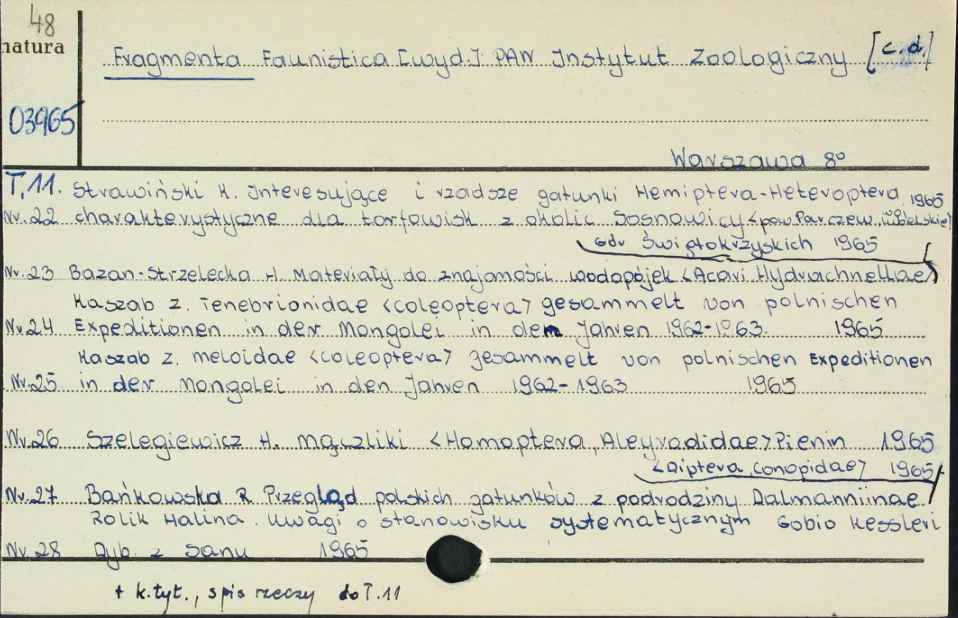 48
natura
Fragmenta Faunistica [wyd.] PAN Instytut Zoologiczny [c.d.]
03965
Warszawa 8°
T.11. Strawiński K. Interesujące i rzadsze gatunki Hemiptera-Heteroptera 1965
Nr.22 charakterystyczne dla torfowisk z okolic Sosnowicy <pow. Parczew, Lubelskie>
Gór Świętokrzyskich 1965
Nr.23 Bazan-Strzelecka H. Materiały do znajomości wodopójek <Acari, Hydrachnellae>
Kaszab Z. Tenebrionidae <Coleoptera> gesammelt von polnischen
Nr.24 Expeditionen in der Mongolei in dem Jahren 1962-1963. 1965
Kaszab Z. Meloidae <Coleoptera> gesammelt von polnischen Expeditionen
Nr.25 in der Mongolei in den Jahren 1962-1963 1965
Nr.26 Szelegiewicz H. Mączliki <Homoptera, Aleyrodidae> Pienin 1965
<Diptera Conopidae> 1965
Nr.27 Bańkowska R Przegląd polskich gatunków z podrodziny Dalmanniinae
Rolik Halina. Uwagi o stanowisku systematycznym Gobio Kessleri
Nr.28 Dyb. z Sanu 1965
+ k.tyt., spis rzeczy do T.11